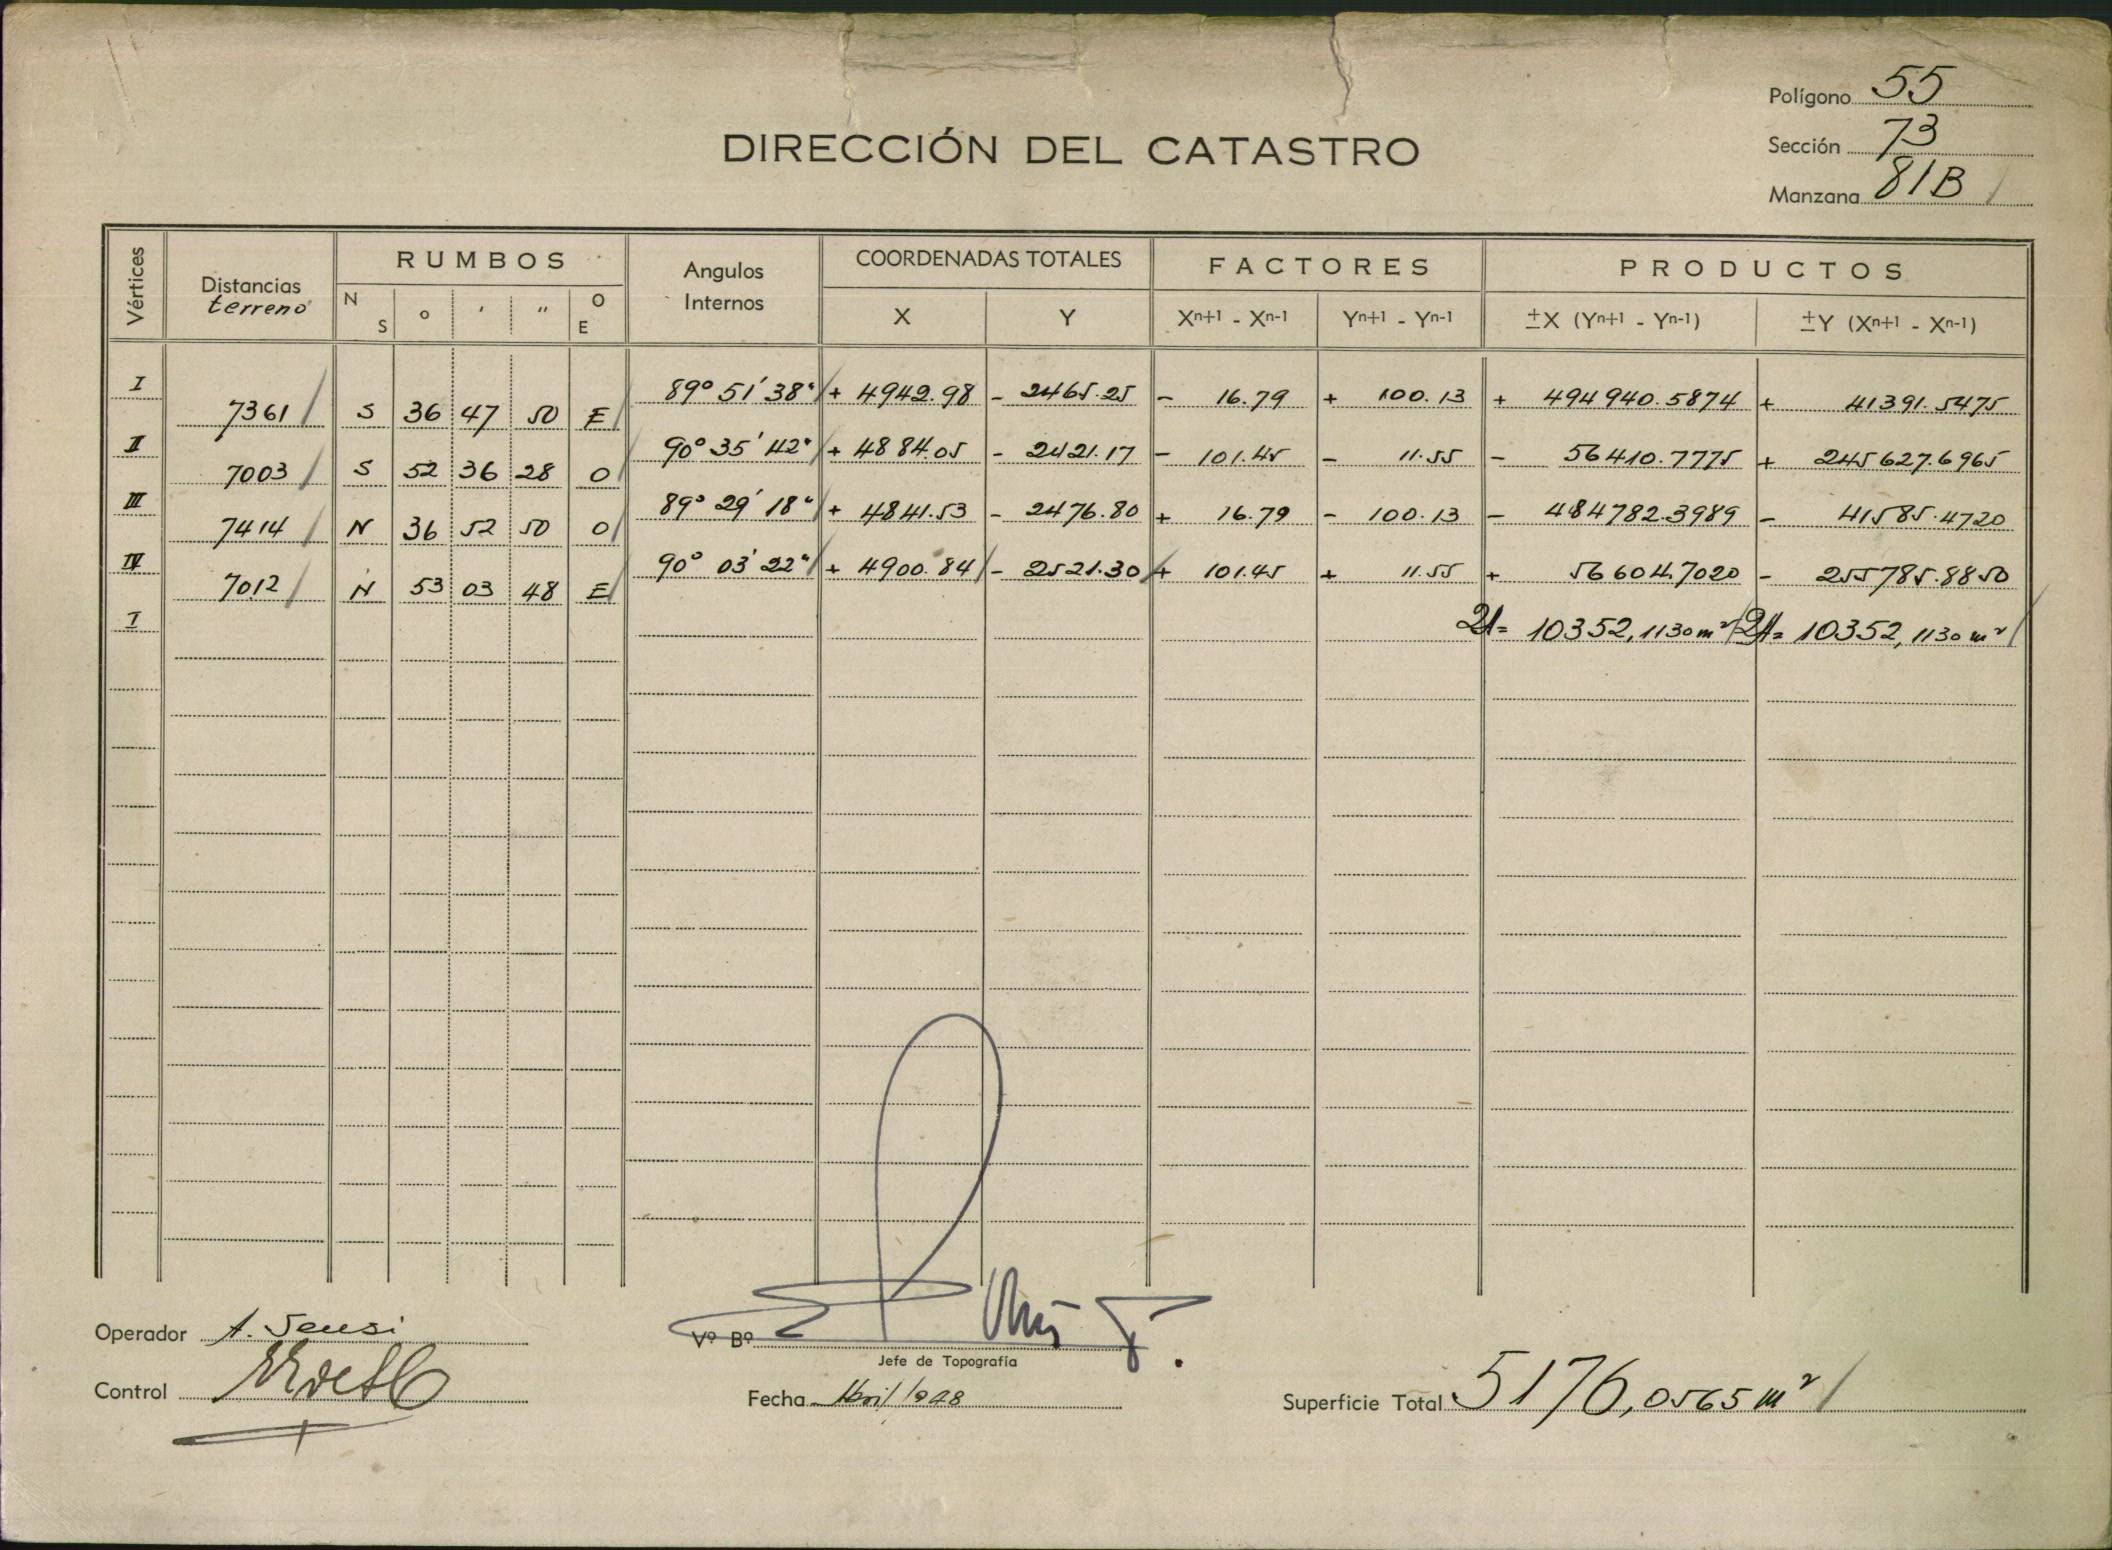 Polígono 55
DIRECCIÓN DEL CATASTRO
Sección 73
Manzana 81B
Vértices
Distancias terreno
RUMBOS
N S ° ' " O E
Angulos Internos
COORDENADAS TOTALES
X Y
FACTORES
Xn+1 - Xn-1 Yn+1 - Yn-1
PRODUCTOS
±X (Yn+1 - Yn-1) ±Y (Xn+1 - Xn-1)
I 89° 51' 38" + 4942.98 - 2465.25 - 16.79 + 100.13 + 494940.5874 + 41391.5475
7361 S 36 47 50 E
II 90° 35' 42" + 4884.05 - 2421.17 - 101.45 - 11.55 - 56410.7775 + 245627.6965
7003 S 52 36 28 O
III 89° 29' 18" + 4841.53 - 2476.80 + 16.79 - 100.13 - 484782.3989 - 41585.4720
7414 N 36 52 50 O
IV 90° 03' 22" + 4900.84 - 2521.30 + 101.45 + 11.55 + 56604.7020 - 255785.8850
7012 N 53 03 48 E
I 2A= 10352,1130 m² 2A= 10352,1130 m²
Operador A. Sensi
Vº Bº
Jefe de Topografía
Control
Fecha Abril/948
Superficie Total 5176,0565 m²